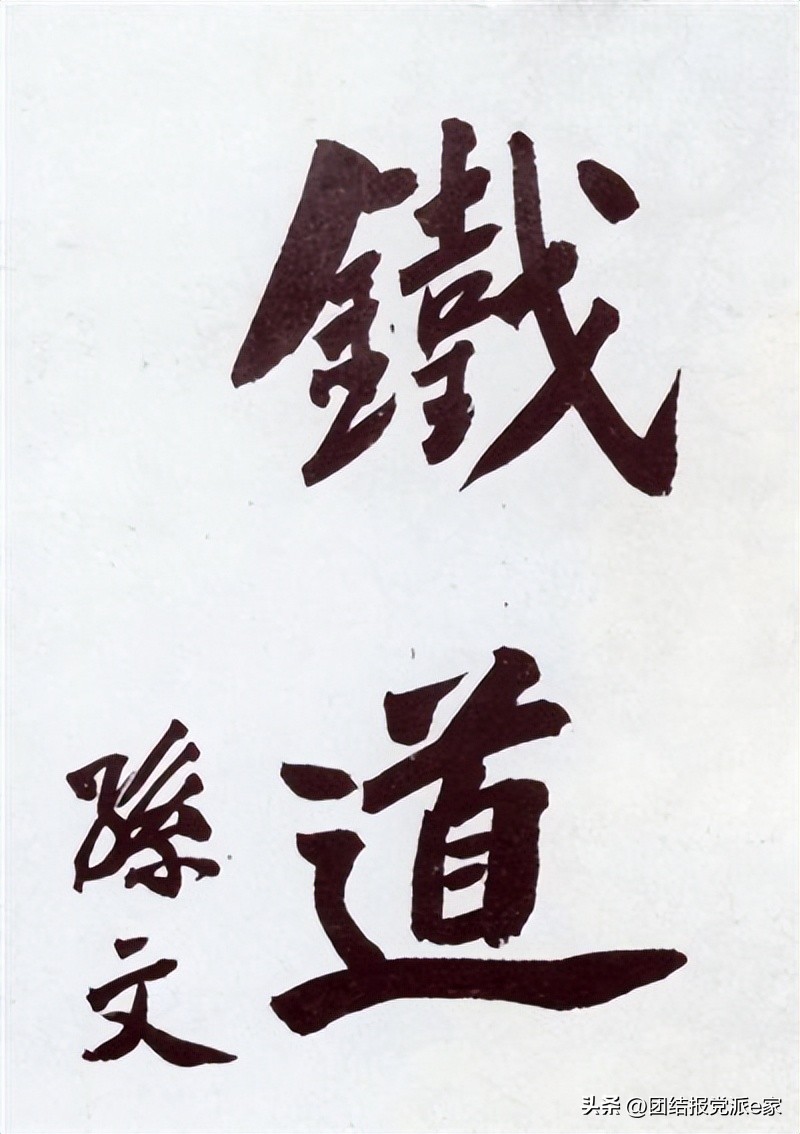 鐵道
孫文
头条 @团结报党派e家